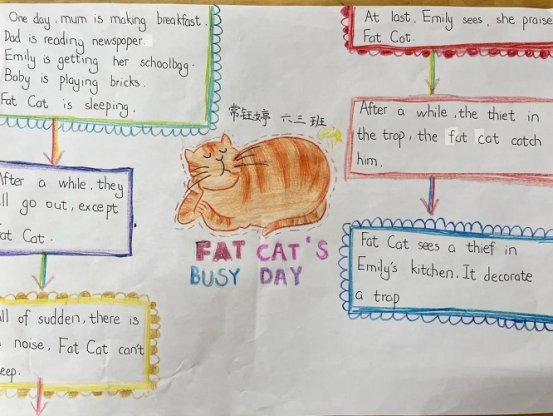 One day, mum is making breakfast.
Dad is reading newspaper.
Emily is getting her schoolbag.
Baby is playing bricks.
Fat Cat is sleeping.
After a while, they
ll go out, except
at Cat.
ll of sudden, there is
noise, Fat Cat can't
eep.
常钰婷 六三班
FAT CAT'S
BUSY DAY
At last, Emily sees, she praise
Fat Cat.
After a while, the thiet in
the trap, the fat cat catch
him.
Fat Cat sees a thief in
Emily's kitchen. It decorate
a trap